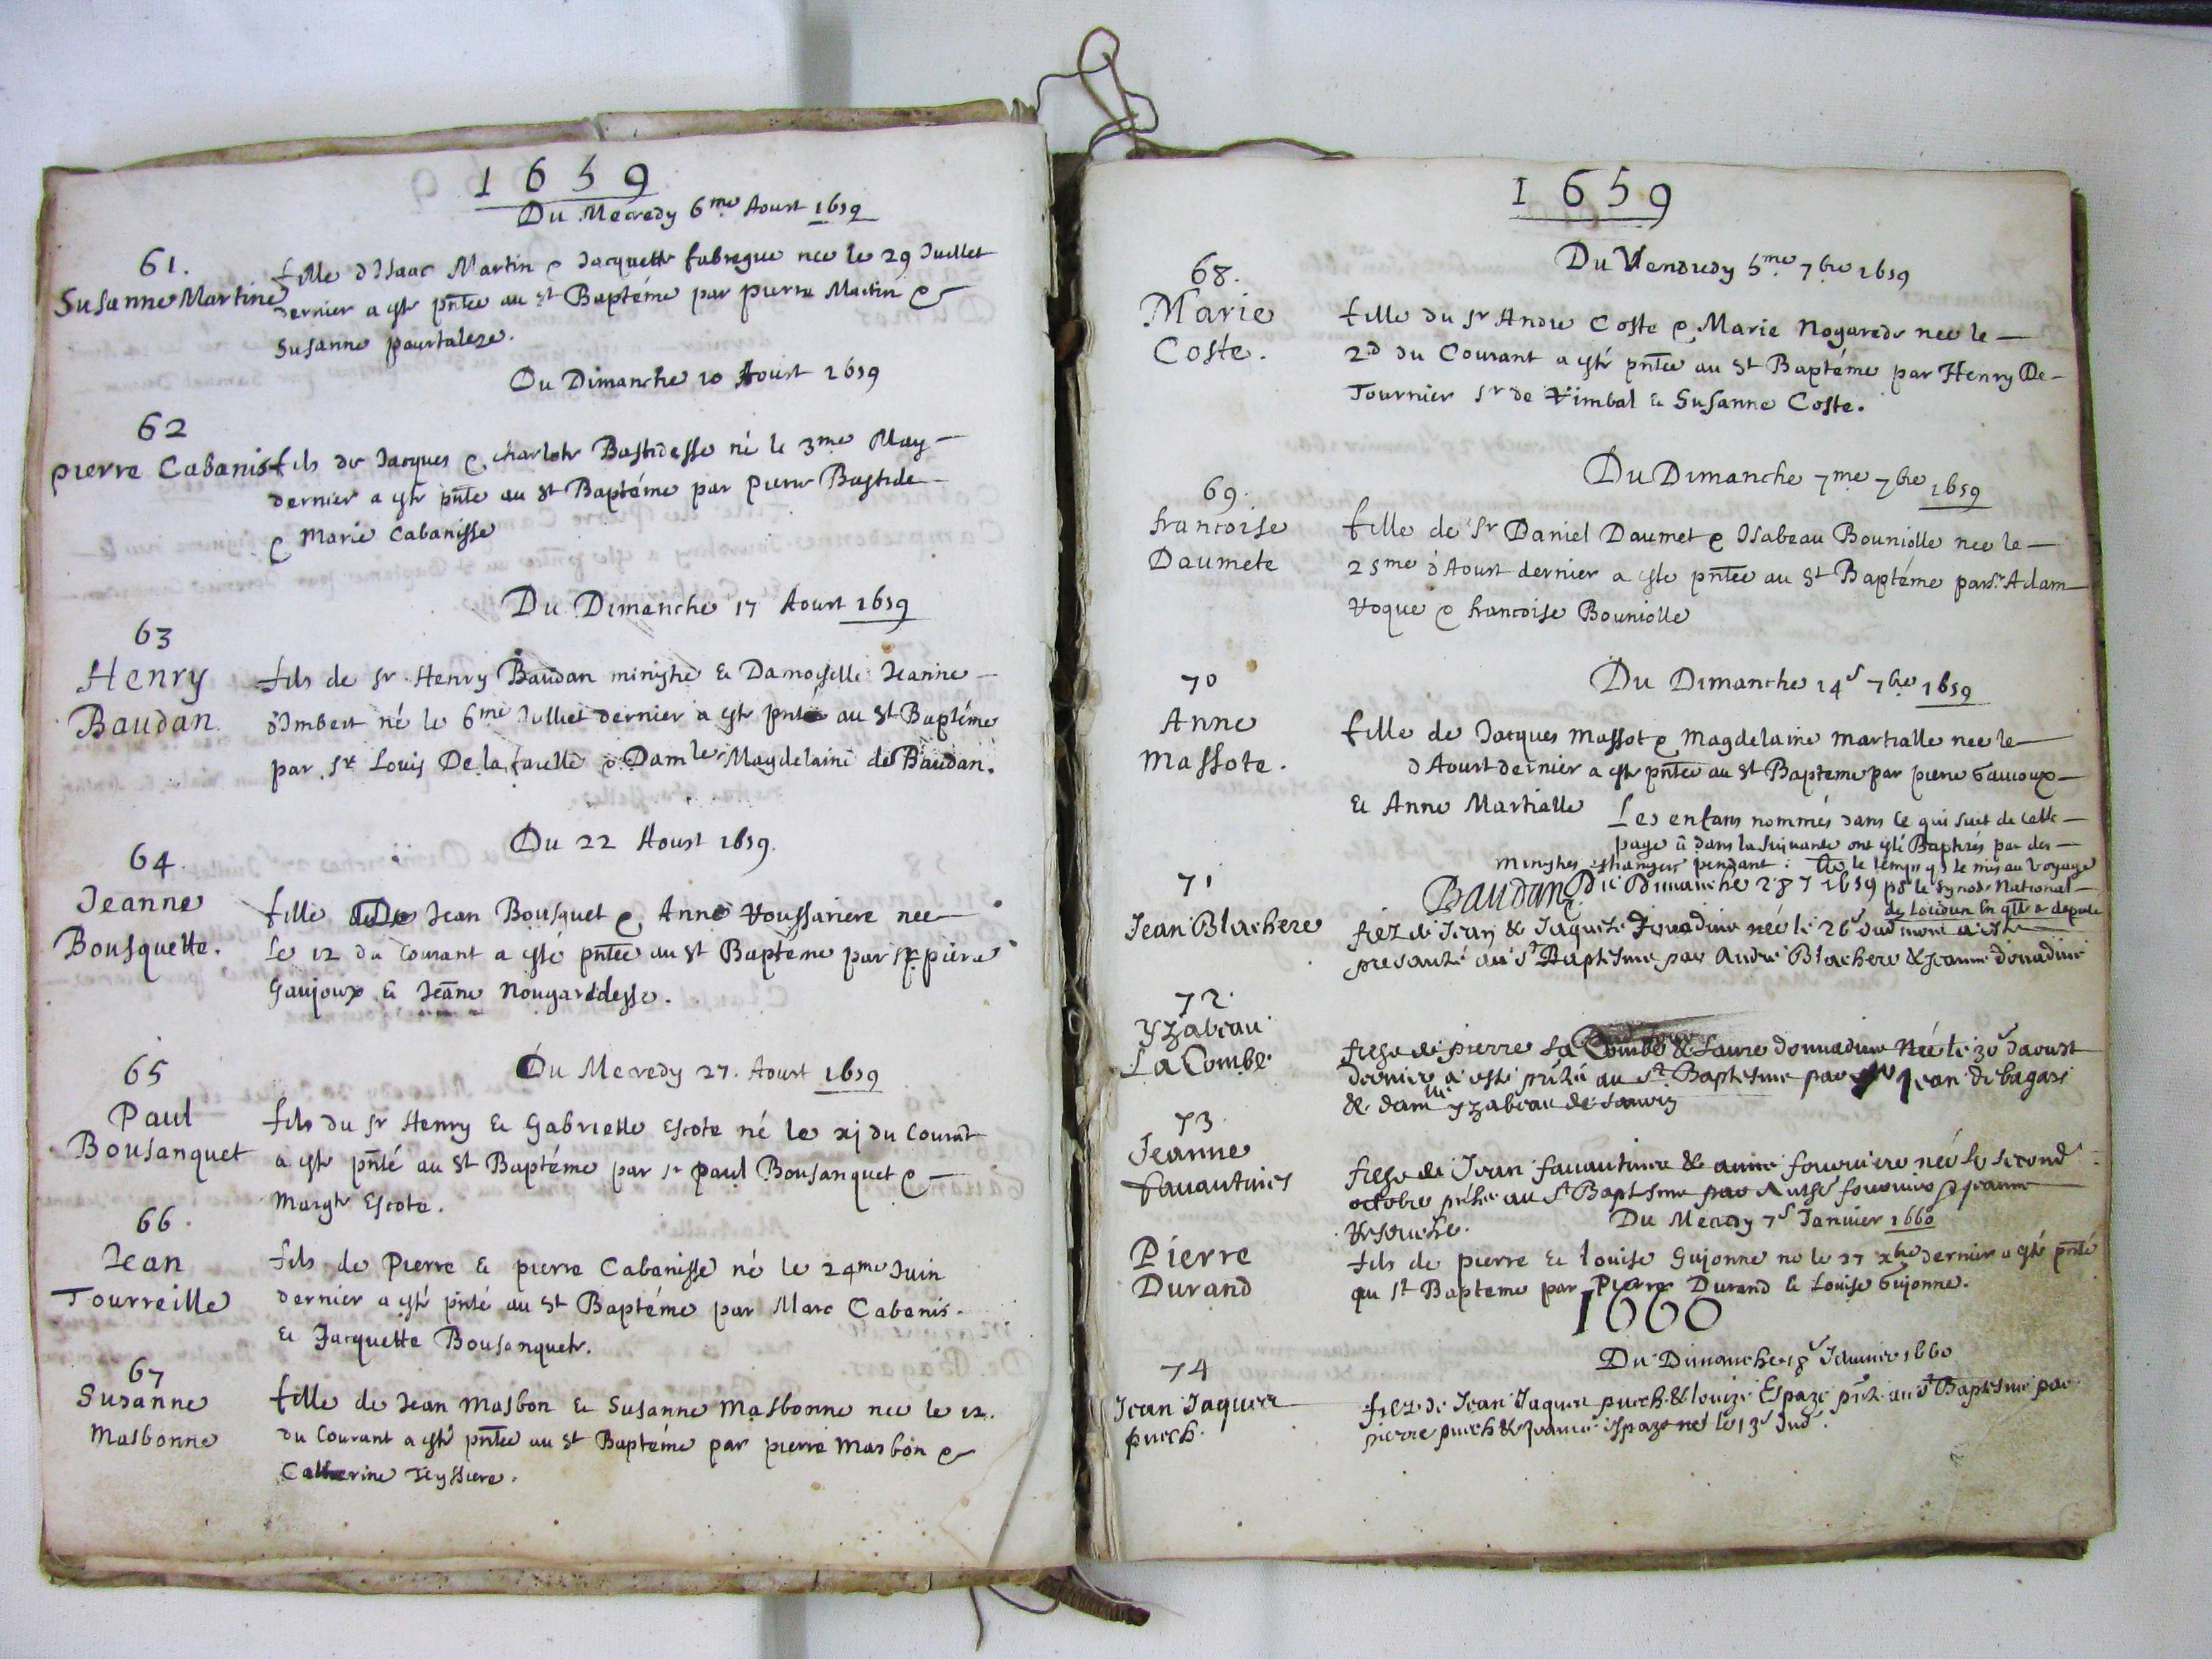 1659
Du Mecredy 6me Aoust 1659
61.
Susanne Martine
fille d'Isaac Martin & Jacquette fabregue nee le 29 Juillet
dernier a esté pntee au St Baptéme par pierre Martin &
Susanne pourtaleze.
Du Dimanche 10 Aoust 1659
62
pierre Cabanis
fils de Jacques & charlote Bastidesse né le 3me May
dernier a esté pnte au St Baptéme par pierre Bastide
& Marie Cabanisse
Du Dimanche 17 Aoust 1659
63
Henry
Baudan
fils de sr Henry Baudan ministre & Damoiselle Jeanne
d'Imbert né le 6me Julliet dernier a esté pnte au St Baptéme
par sr Louis De la farelle & Damle Magdelaine de Baudan.
Du 22 Aoust 1659.
64.
Jeanne
Bousquette.
fille de Jean Bousquet & Anne Voussariere nee
Le 12 du Courant a esté pntee au St Bapteme par sr piere
Gaujoux & Jeane Nougaredesse.
Du Mecredy 27. Aoust 1659
65
Paul
Bousanquet
fils du sr Henry & Gabrielle Escote né le xj du Courat
a esté pnté au St Baptéme par sr paul Bousanquet &
Margte Escote.
66.
Jean
Tourreille
fils de Pierre & pierre Cabanisse né le 24me Juin
dernier a esté pnté au St Baptéme par Marc Cabanis.
& Jacquette Bousanquete.
67
Susanne
Masbonne
fille de Jean Masbon & Susanne Masbonne nee le 12.
du Courant a esté pntee au St Baptéme par pierre Masbon &
Catherine Teyssiere.
1659
Du Vendredy 5me 7bre 1659
68.
Marie
Coste.
fille du sr Andre Coste & Marie Nogarede nee le
2d du Courant a esté pntee au St Baptéme par Henry De
Tournier sr de Vimbal & Susanne Coste.
Du Dimanche 7me 7bre 1659
69.
francoise
Daumete
fille de sr Daniel Daumet & Isabeau Bouniolle nee le
25me d'Aoust dernier a esté pntee au St Baptéme par sr Adam
Voque & francoise Bouniolle
Du Dimanche 14e 7bre 1659
70
Anne
Massote.
fille de Jacques Massot & Magdelaine Martialle nee le
d Aoust dernier a esté pntee au St Bapteme par pierre Gaucoux
& Anne Martialle
Les enfans nommés dans ce qui suit de cette
page & dans la suivante ont esté Baptisés par des
ministres estrangers pendant le temps q je mis au voyage
Baudan
Du Dimanche 28 7 1659
pr le synode National
de Loudun
71
Jean Blachere
fiez de Jean & Jaquete Donadiue né le 26 dud mois a esté
presanté au St Baptisme par Andre Blachere & Jeanne Donadiue
72.
Yzabeau
La Combe
fiege de pierre La Combe & Laure Donnadiue née le 30 daoust
dernier a esté pntée au St Baptisme par Jean de bagars
& damlle Yzabeau de
73
Jeanne
favantines
fiege de Jean favantines & anne fourniere née le second
octobre pntee au St Baptisme par fournier & jeanne
Du Mecredy 7e Janvier 1660
Pierre
Durand
fils de pierre & louise Gujonne ne le 27 xbre dernier a esté pnté
au St Bapteme par Pierre Durand & Louise Gujonne.
1660
Du Dimanche 18e Janvier 1660
74
Jean Jaques
puech.
fiez de Jean Jaques puech & louize Espaze pnté au St Baptisme par
pierre puech & jeanne espaze né le 13e dud.